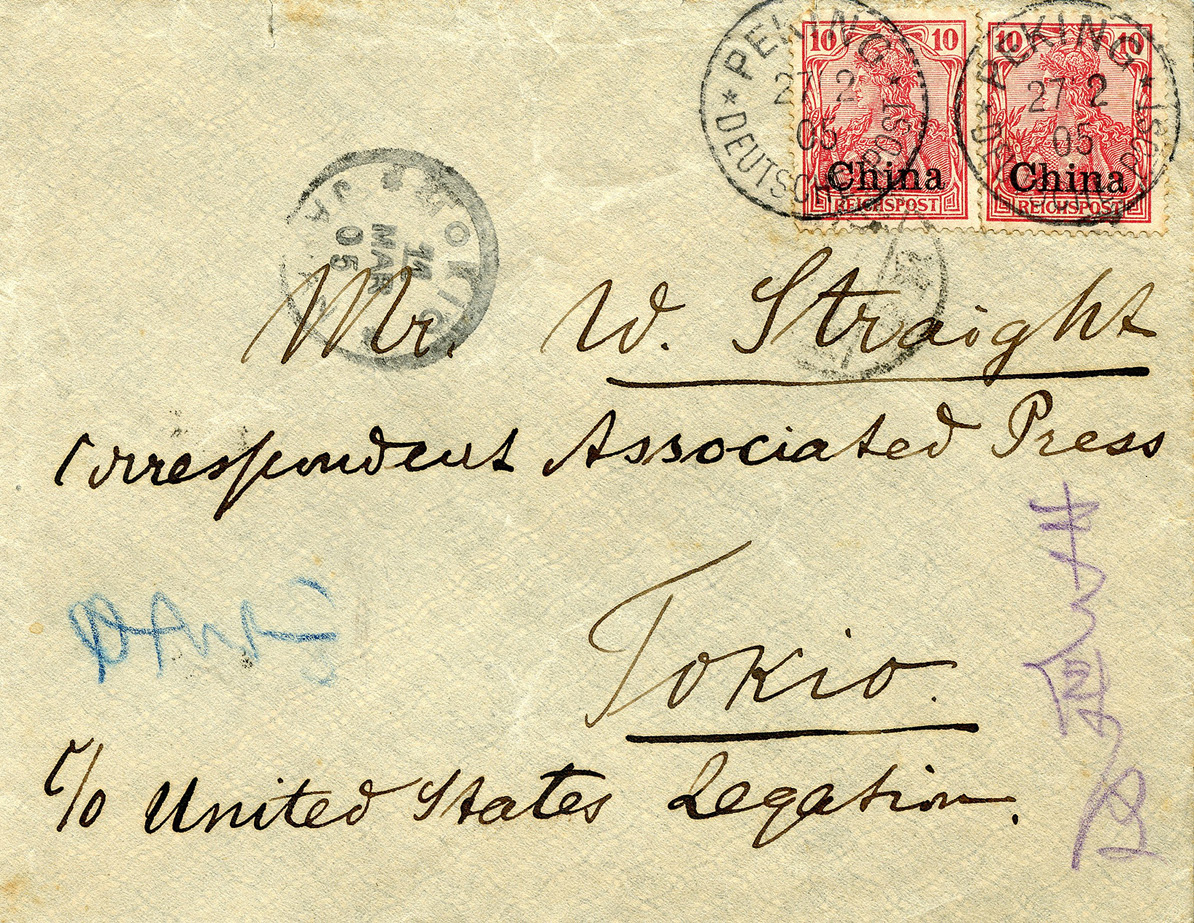 10 10 10 10
PEKING
27 2
05
* DEUTSCHE POST *
PEKING
27 2
05
China China
REICHSPOST REICHSPOST
TOKIO
11
MAR
05
Mr. W. Straight
Correspondent Associated Press
Tokio.
c/o United States Legation.